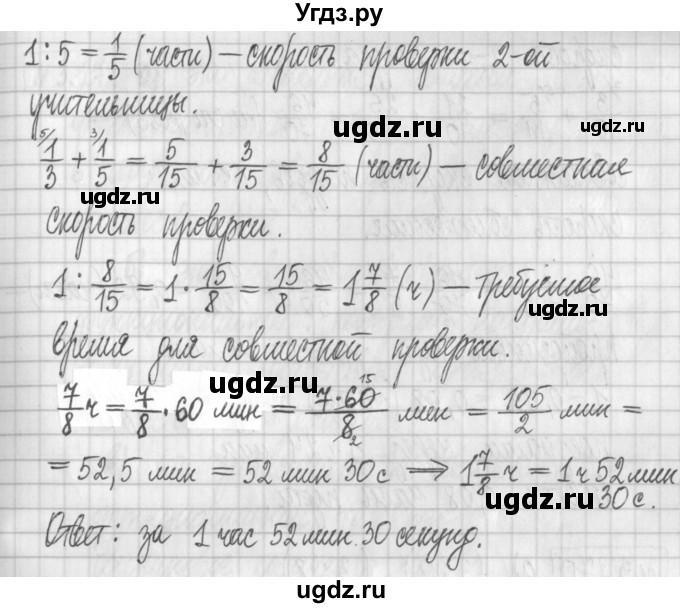 Угдз.ру
1 : 5 = 1/5 (части) – скорость проверки 2-ой
учительницы.
ugdz.ru
ugdz.ru
5/ 1/3 + 3/ 1/5 = 5/15 + 3/15 = 8/15 (части) – совместная
ugdz.ru
скорость проверки.
1 : 8/15 = 1 · 15/8 = 15/8 = 1 7/8 (ч) – требуемое
ugdz.ru
время для совместной проверки.
ugdz.ru
7/8 ч = 7/8 · 60 мин = 7 · 60 15/8 2 мин = 105/2 мин =
= 52,5 мин = 52 мин 30 с ⟹ 1 7/8 ч = 1 ч 52 мин
30 с.
ugdz.ru
ugdz.ru
Ответ: за 1 час 52 мин. 30 секунд.
ugdz.ru